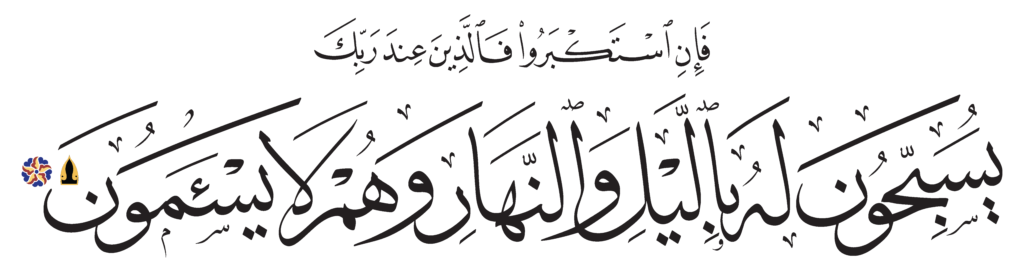 فَإِنِ ٱسْتَكْبَرُوا۟ فَٱلَّذِينَ عِندَ رَبِّكَ
يُسَبِّحُونَ لَهُۥ بِٱلَّيْلِ وَٱلنَّهَارِ وَهُمْ لَا يَسْـَٔمُونَ